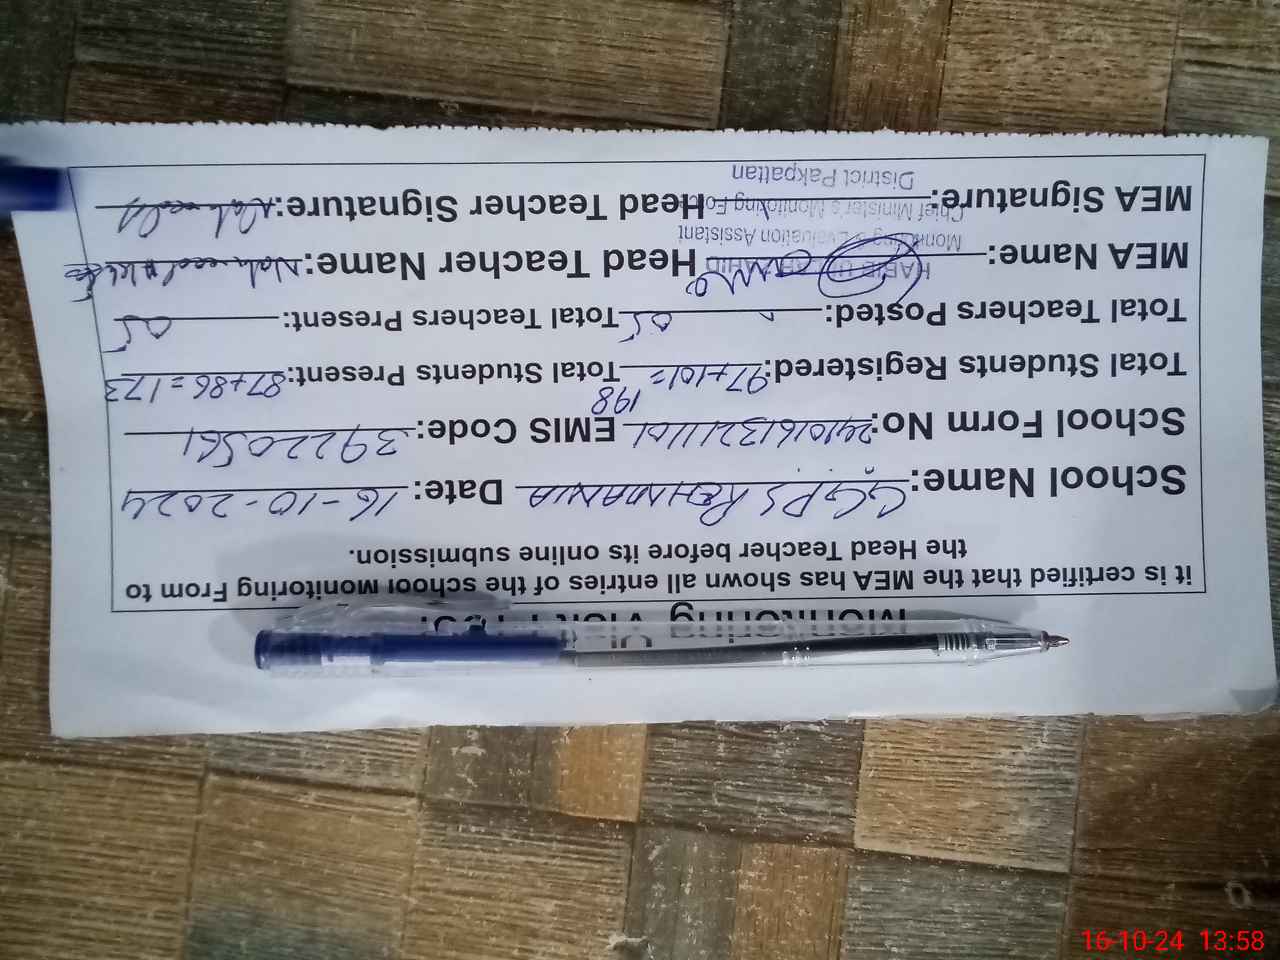 Monitoring Visit Proof
it is certified that the MEA has shown all entries of the school Monitoring From to
the Head Teacher before its online submission.
School Name: GGPS REHMANIA Date: 16-10-2024
School Form No: EMIS Code: 39220561
Total Students Registered: 97+101= 198 Total Students Present: 87+86=173
Total Teachers Posted: 05 Total Teachers Present: 05
MEA Name: Head Teacher Name: Naheed
MEA Signature: Head Teacher Signature: Naheed
HABIB ULLAH ZAHID
Monitoring & Evaluation Assistant
Chief Minister's Monitoring Force
District Pakpattan
16-10-24 13:58